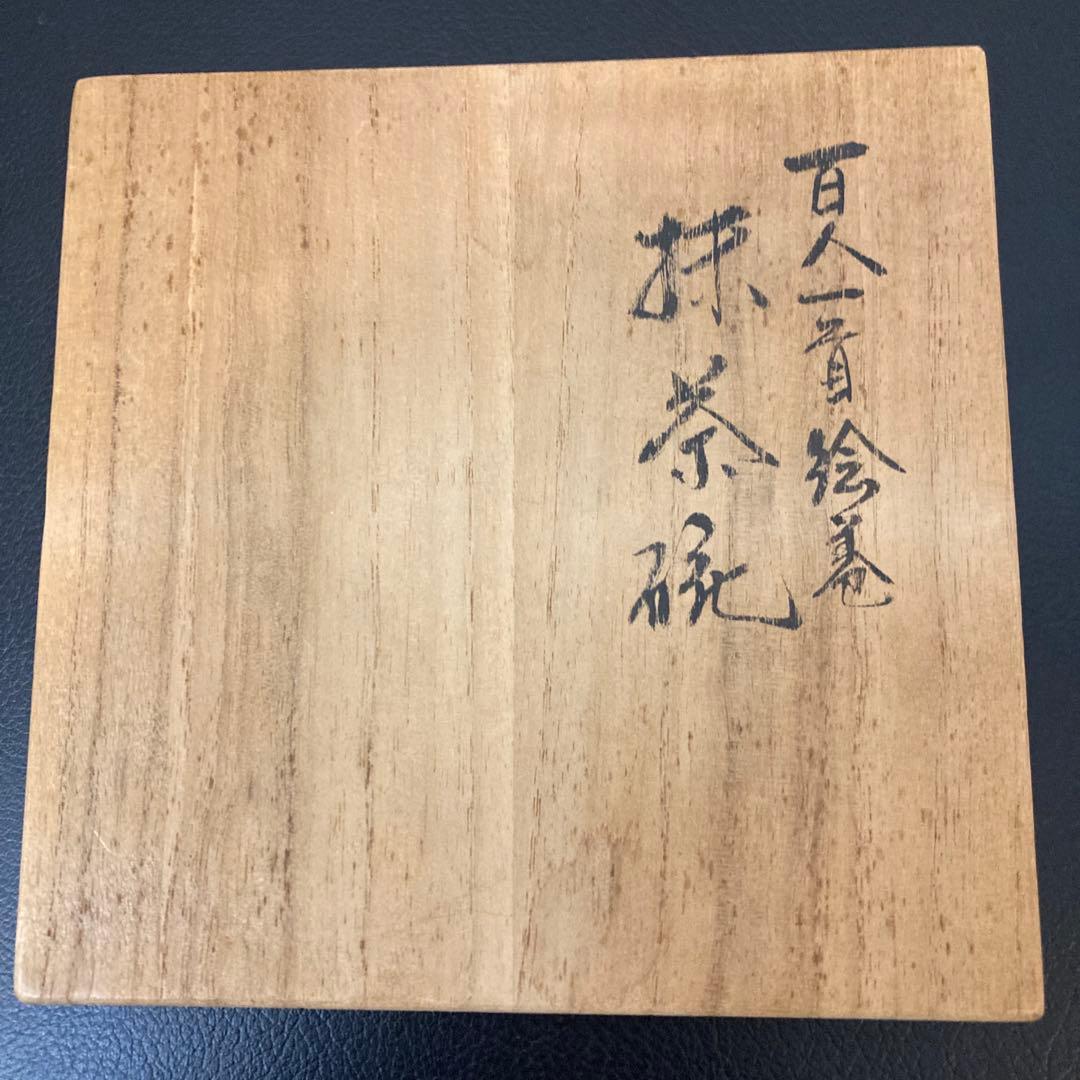 百人一首絵巻
抹茶碗